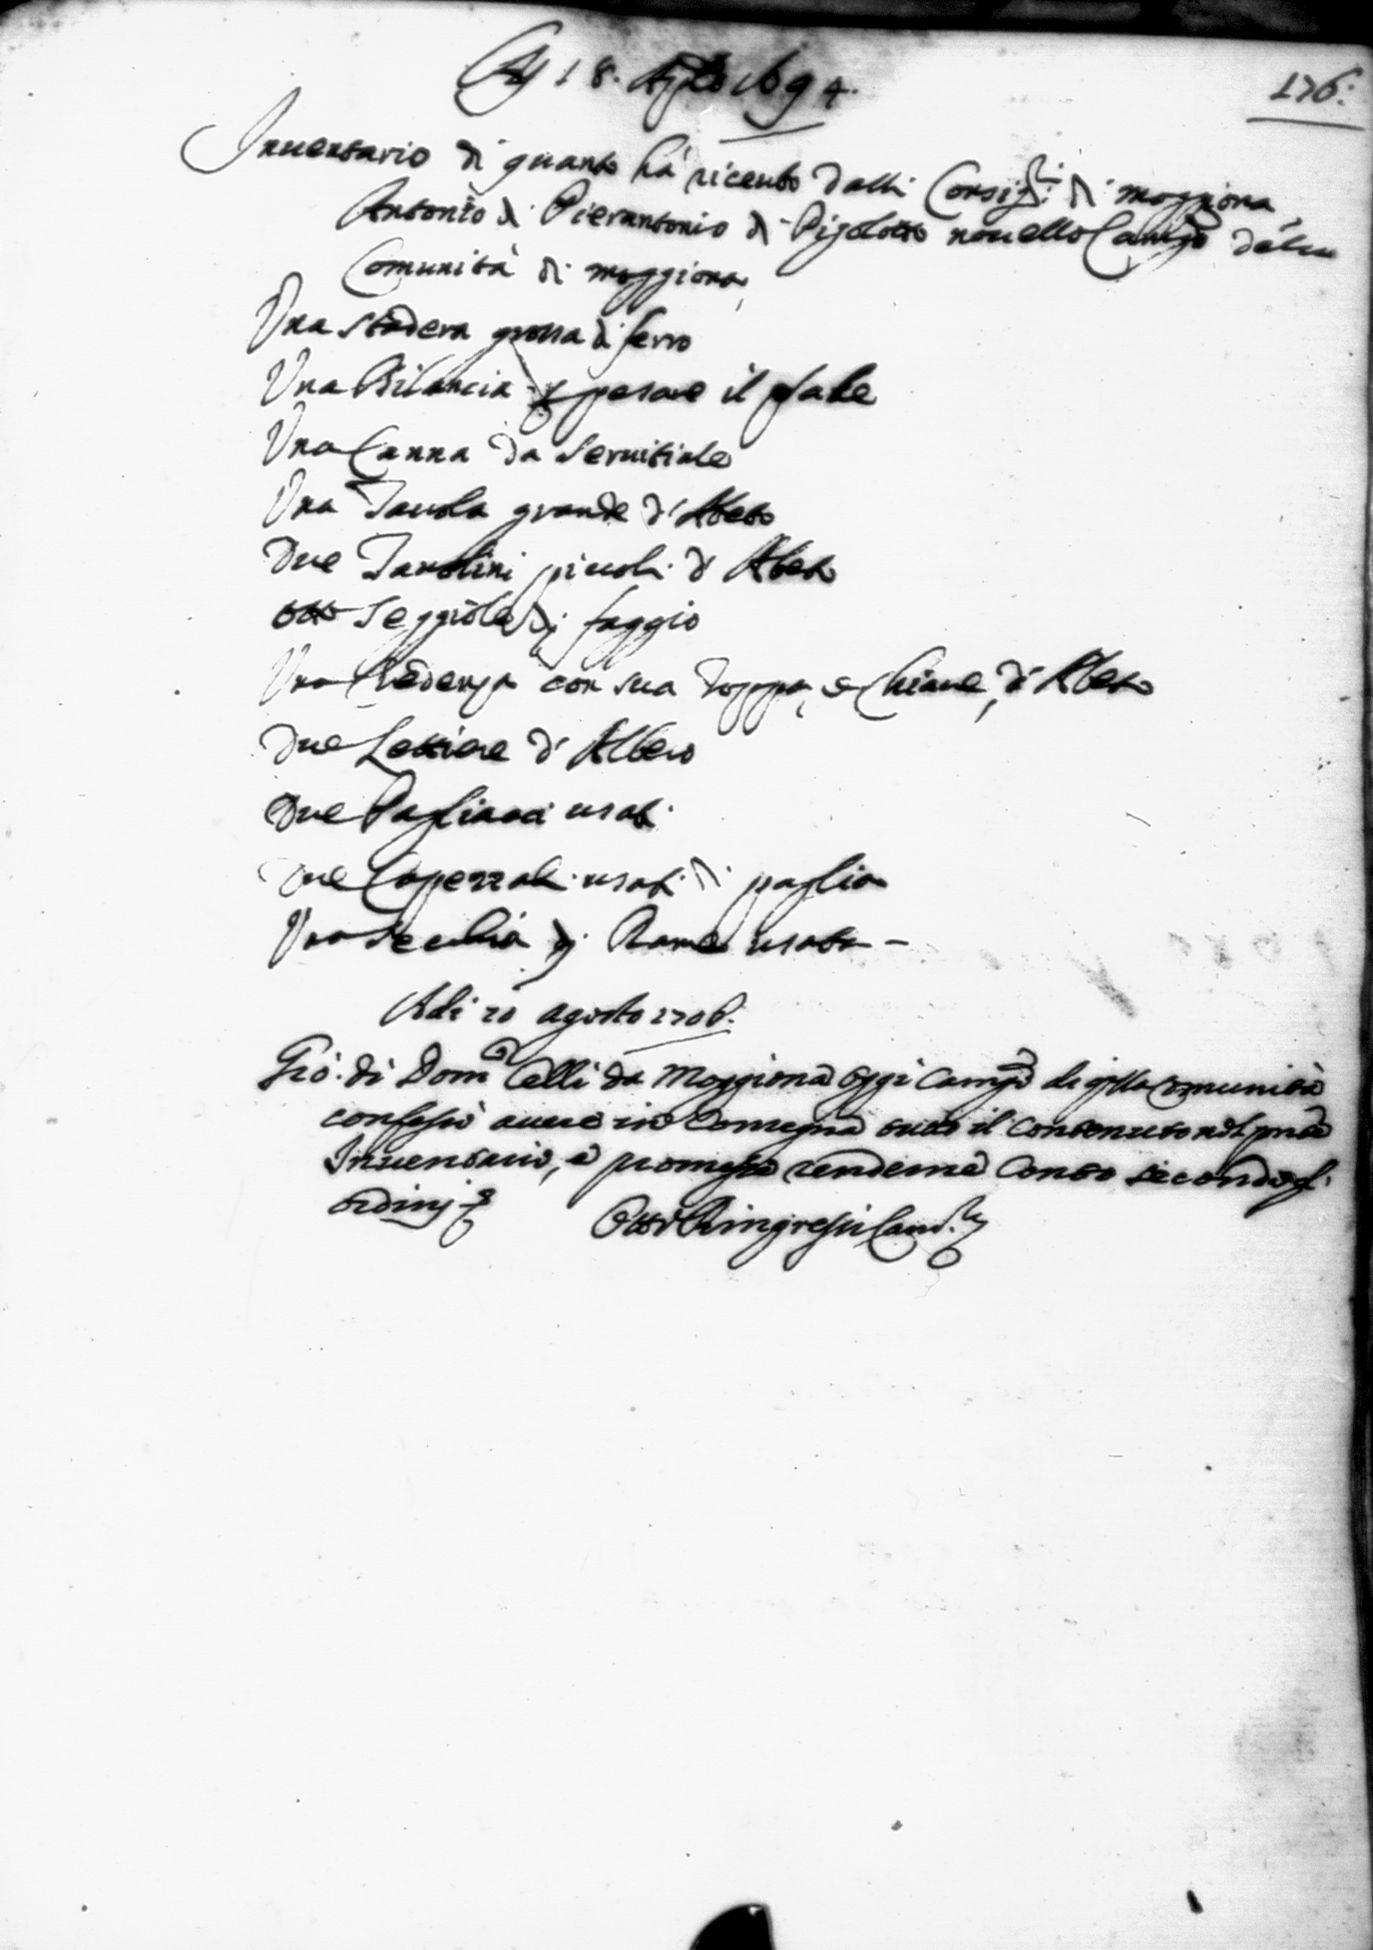 176.
Adj 18. Agto 1694.
Inuentario di quanto hà riceuto dalli Consiri: di moggiona
Antonio di Pierantonio di Pigolotto nouello Camgo della
Comunità di moggiona
Una stadera grossa di ferro
Una Bilancia p pesare il sale
Una Canna da Seruitiale
Una Tauola grande d'Abeto
Due Tauolini piccoli d'Abeto
otto Seggiole dj faggio
Una Credenza con sua Toppa, e Chiaue, d'Abeto
Due Lettiere d'Albero
Due Pagliacci usati
Due Capezzali usati di paglia
Una Secchia dj Rame usata -
Adi 20 agosto 1706.
Gio. di Domco Celli da Moggiona oggi Camgo di qsta Comunità
confessò auere in Consegna tutto il Contenuto nel pnte
Inuentario, e promesse renderne Conto secondo gl'
ordinj &
Otto Ringressi Canc.re